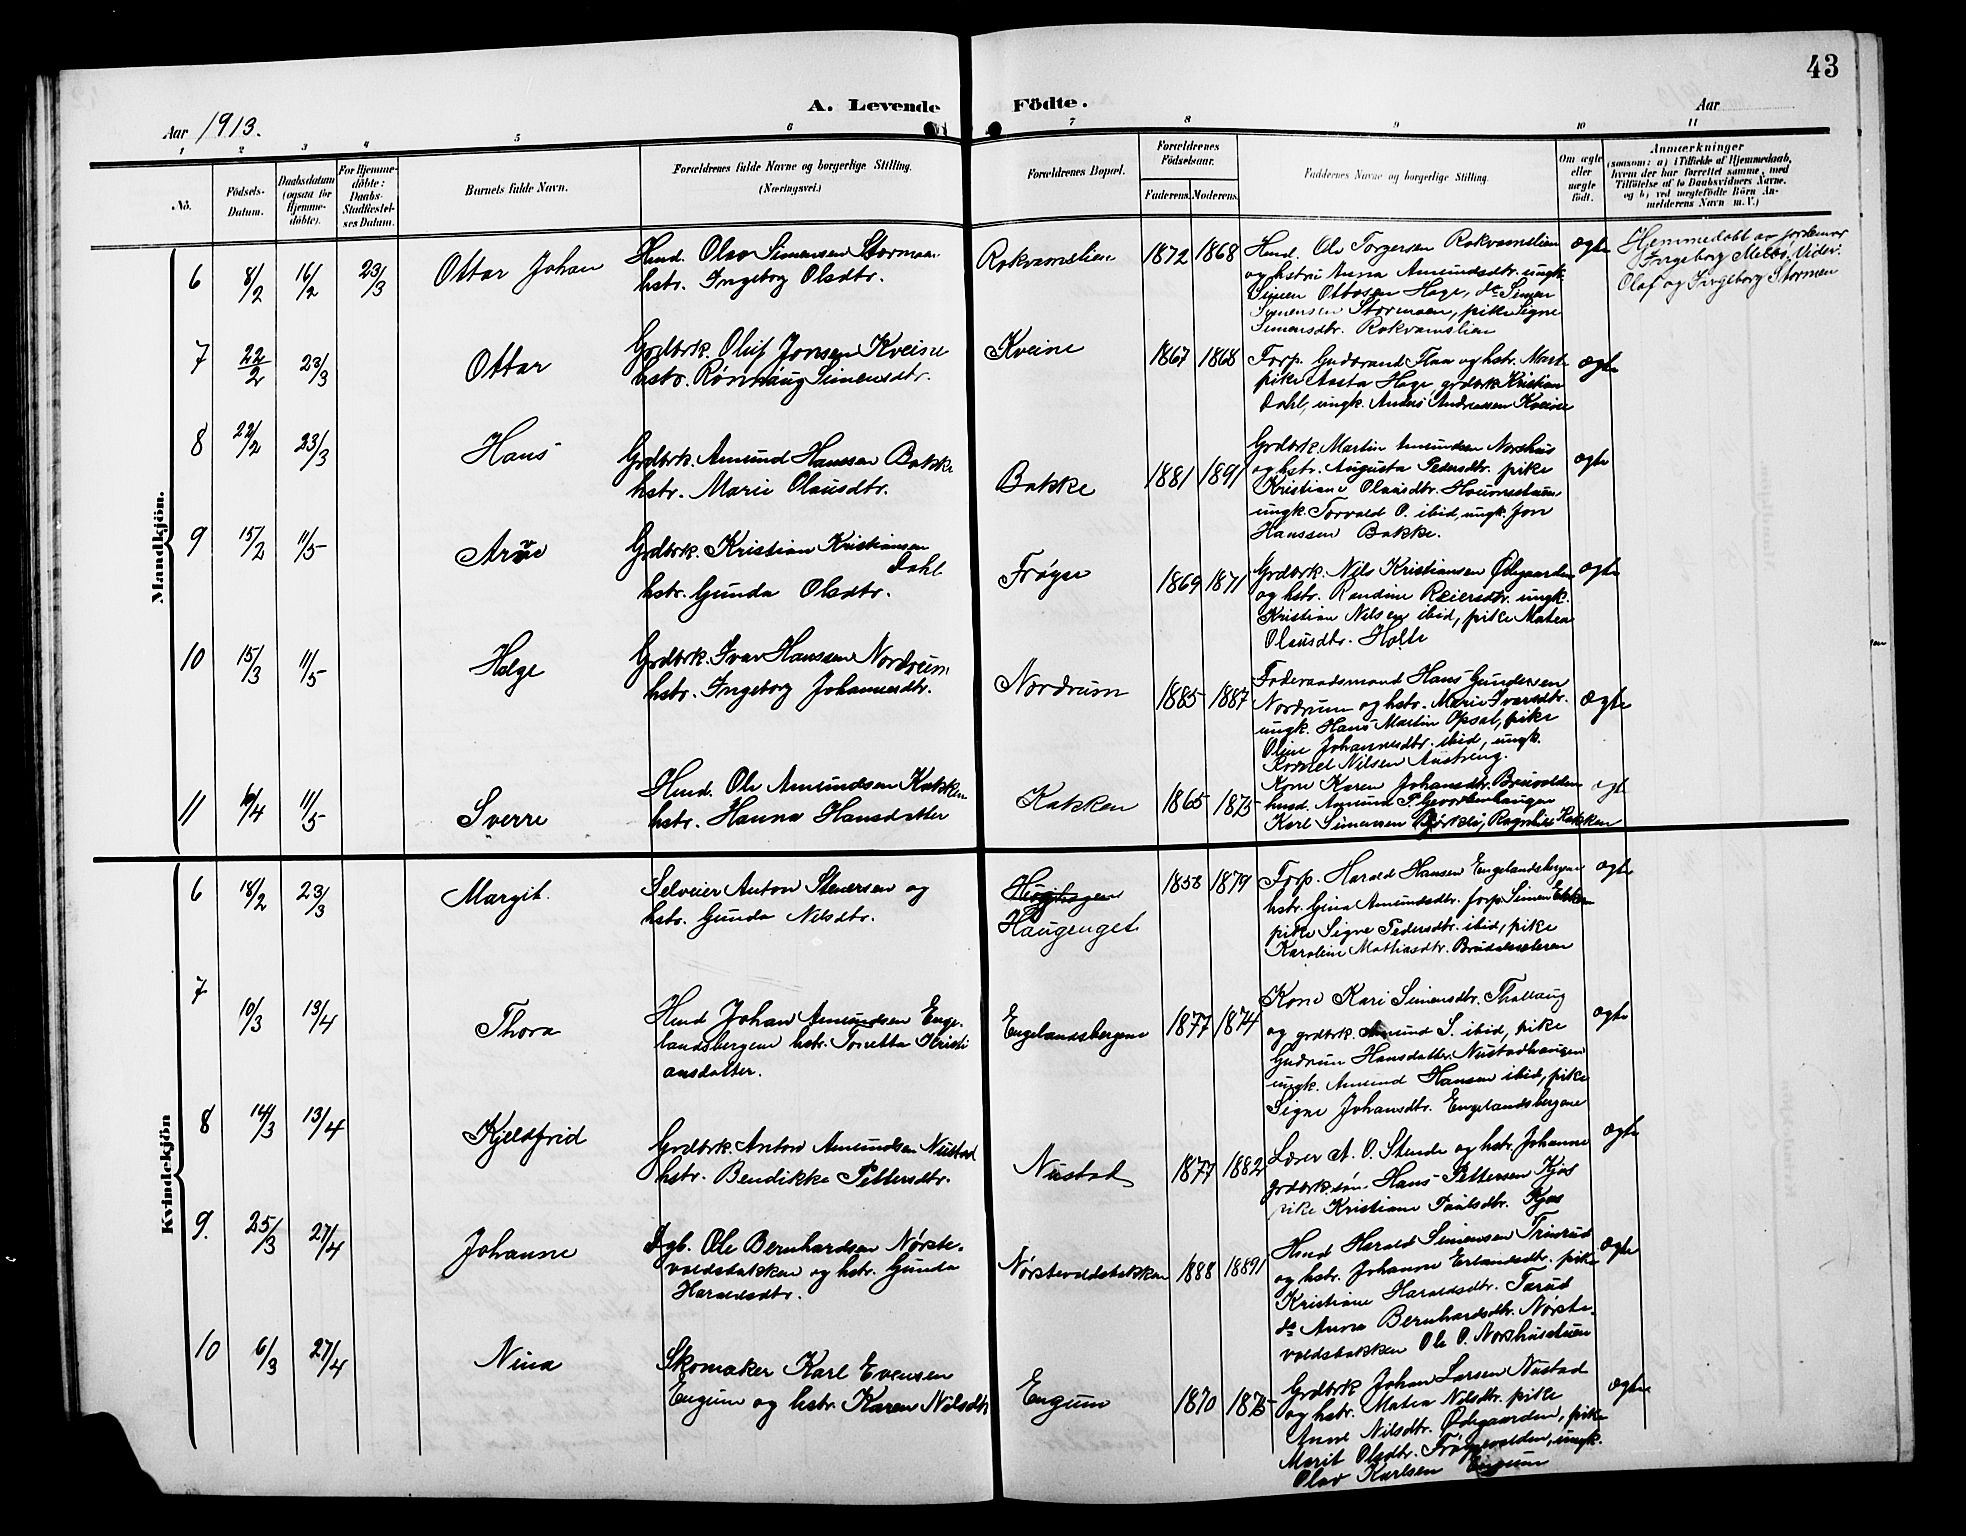 43
A. Levende Födte.
Aar 1913.
Aar
1 2 3 4 5 6 7 8 9 10 11
No.
Födsels-
Datum.
Daabsdatum
(ogsaa for
Hjemme-
döbte).
For Hjemme-
döbte:
Daabs-
Stadfæstel-
ses Datum.
Barnets fulde Navn.
Forældrenes fulde Navne og borgerlige Stilling.
(Næringsvei.)
Forældrenes Bopæl.
Forældrenes
Födselsaar.
Faderens. Moderens.
Faddernes Navne og borgerlige Stilling.
Om ægte
eller
uægte
födt.
Anmærkninger
(saasom: a) i Tilfælde af Hjemmedaab,
hvem der har forrettet samme, med
Tilföielse af to Daabsvidners Navne.
og b, ved uægtefödte Börn An-
melderens Navn m. V.)
Mandkjön.
6 8/2 16/2 23/3 Ottar Johan
Hmd. Olav Simensen Stormoen
hstr. Ingeborg Olsdtr.
Rokvamslien 1872 1868
Hmd. Ole Torgersen Rokvamslien
og hstru Anna Amundsdtr. ungk.
Simen Ottosen Hage, do Simen
Simensen Stormoen, pike Signe
Simensdtr. Rokvamslien
ægte
Hjemmedøbt av jordemor
Ingeborg Melbø. Vidner:
Olaf og Ingeborg Stormoen
7 22/2 23/3 Ottar
Grdbrk. Oluf Jonsen Kveine
hstr. Rønnaug Simensdtr.
Kveine 1867 1868
Forp. Gudbrand Flaa og hstr. Mart
pike Aasta Hage, grdbrk Kristian
Dahl, ungk. Anders Andreassen Kveine
ægte
8 22/2 23/3 Hans
Grdbrk. Amund Hanssen Bakke
hstr. Marie Olausdtr.
Bakke 1881 1891
Grdbrk. Martin Amundsen Norshus
og hstr. Augusta Pedersdtr. pike
Kristiane Olausdtr.
ungk. Torvald O. ibid, ungk. Jon
Hanssen Bakke.
ægte
9 15/2 11/5 Arve
Grdbrk. Kristian Kristiansen
Dahl
hstr. Gunda Olsdtr.
Frøyse 1869 1871
Grdbrk. Nils Kristiansen Ødegaarden
og hstr. Randine Reiersdtr. ungk.
Kristian Nilsen ibid, pike Matea
Olausdtr. Holte
ægte
10 15/3 11/5 Helge
Grdbrk. Ivar Hanssen Nordrum
hstr. Ingeborg Johannesdtr.
Nordrum 1885 1887
Føderaadsmand Hans Gundersen
Nordrum og hstr. Marie Iversdtr.
ungk. Hans Martin Opsal, pike
Oline Johannesdtr. ibid, ungk.
Kornel Nilsen Austreng.
ægte
11 6/4 11/5 Sverre
Hmd. Ole Amundsen Kakken
hstr. Hanna Hansdatter
Kakken 1865 1875
Kone Karen Johansdtr. Breivolden
husd. Amund P.
Karl Simensen Bjørkli, Ragnhild Kakken
egt
Kvindekjön
6 18/2 23/3 Margit.
Selveier Anton Stenersen og
hstr. Gunda Nilsdtr.
Haugenget 1858 1879
Forp. Harald Hansen Engelandsbergene
hstr. Gina Amundsdtr. forp. Simen
pike Signe Pedersdtr. ibid, pike
Karoline Mathiasdtr.
ægte
7 10/3 13/4 Thora
Hmd Johan Amundsen Enge-
landsbergene hstr. Tonetta Kristi
ansdatter.
Engelandsbergene 1877 1874
Kone Kari Simensdtr. Thallaug
og grdbrk. Amund S. ibid, pike
Gudrun Hansdatter Nustadhaugen
ungk. Amund Hansen ibid, pike
Signe Johansdtr. Engelandsbergene
ægte
8 14/3 13/4 Kjeldfrid
Grdbrk. Anton Amundsen Nustad
hstr. Bendikke Pettersdtr.
Nustad 1877 1882
Lærer A. O. Stende og hstr. Johanne
grdbrk.søn. Hans Pettersen Kjos
pike Kristiane Paulsdtr. Kjos
ægte
9. 25/3 27/4 Johanne
Dgb. Ole Bernhardsen Nørste-
voldsbakken og hstr. Gunda
Haraldsdtr.
Nørstevoldsbakken 1888 1889
Hmd Harald Simensen
og hstr. Johanne Erlandsdtr. pike
Kristiane Haraldsdtr.
do Anna Bernhardsdtr. Nørste-
voldsbakken Ole O. Norshusstuen
ægte
10 6/3 27/4 Nina
Skomaker Karl Evensen
Engum og hstr. Karen Nilsdtr
Engum 1870 1875
Grdbrk Johan Larsen Nustad
og hstr. Matea Nilsdtr. pike
Anne Nilsdtr. Ødegaarden, pike
Marit Olsdtr. Frøysevolden, ungk.
Olav Karlsen Engum
ægte